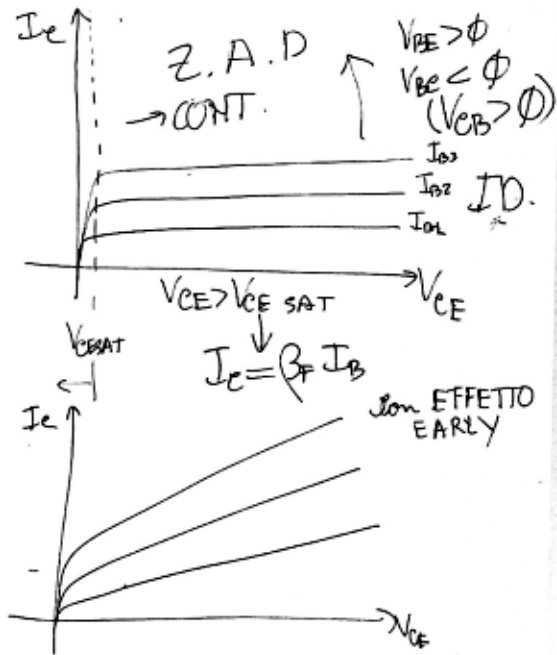 Ic
Z.A.D
→ CONT.
VBE > ∅
VBC < ∅
(VCB > ∅)
IB3
IB2
IB1
ID.
VCE
VCE > VCE SAT
VCESAT
IC = βF IB
Ic
con EFFETTO
EARLY
VCE